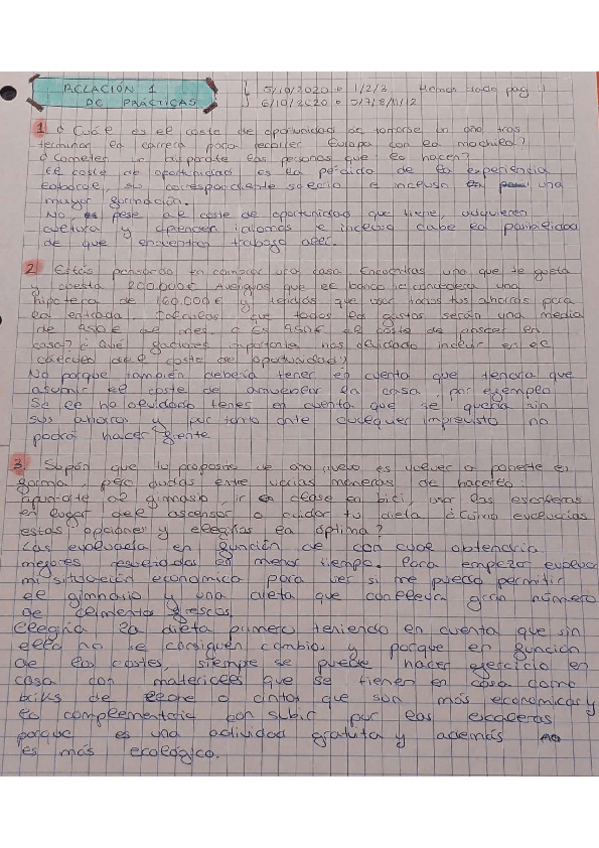 RELACIÓN 1 5/10/2020 1/2/3 Hemos dado pag 1
DE PRÁCTICAS 6/10/2020 5/7/8/11/12
1 ¿Cuál es el coste de oportunidad de tomarse un año tras
terminar la carrera para recorrer Europa con la mochila?
¿Cometen un disparate las personas que lo hacen?
El coste de oportunidad es la pérdida de la experiencia
laboral, su correspondiente salario e incluso una
mayor formación.
No, pese al coste de oportunidad que tiene, adquieren
cultura y aprenden idiomas e incluso cabe la posibilidad
de que encuentren trabajo allí.
2 Estás pensando en comprar una casa. Encuentras una que te gusta
y cuesta 200.000€. Averiguas que el banco te concedería una
hipoteca de 160.000€ y tendrías que usar todos tus ahorros para
la entrada. Calculas que todos los gastos serán una media
de 950€ al mes. ¿Es 950€ el coste de poseer en
casa? ¿Qué factores importantes has olvidado incluir en el
cálculo del coste de oportunidad?
No porque también debería tener en cuenta que tendría que
asumir el coste de amueblar la casa, por ejemplo
Se le ha olvidado tener en cuenta que se queda sin
sus ahorros y por tanto ante cualquier imprevisto no
podrá hacer frente
3. Supón que tu propósito de año nuevo es volver a ponerte en
forma, pero dudas entre varias maneras de hacerlo:
apuntarte al gimnasio, ir a clase en bici, usar las escaleras
en lugar del ascensor o cuidar tu dieta. ¿Cómo evaluarías
estas opciones y elegirías la óptima?
Las evaluaría en función de con cual obtendría
mejores resultados en menor tiempo. Para empezar evaluo
mi situación económica para ver si me puedo permitir
el gimnasio y una dieta que conlleva gran número
de alimentos frescos.
Elegiría la dieta primero teniendo en cuenta que sin
ella no se consiguen cambios y porque en función
de los costes, siempre se puede hacer ejercicio en
casa con materiales que se tienen en casa como
briks de leche o cintas que son más económicas y
lo complementaria con subir por las escaleras
porque es una actividad gratuita y además
es más ecológico.